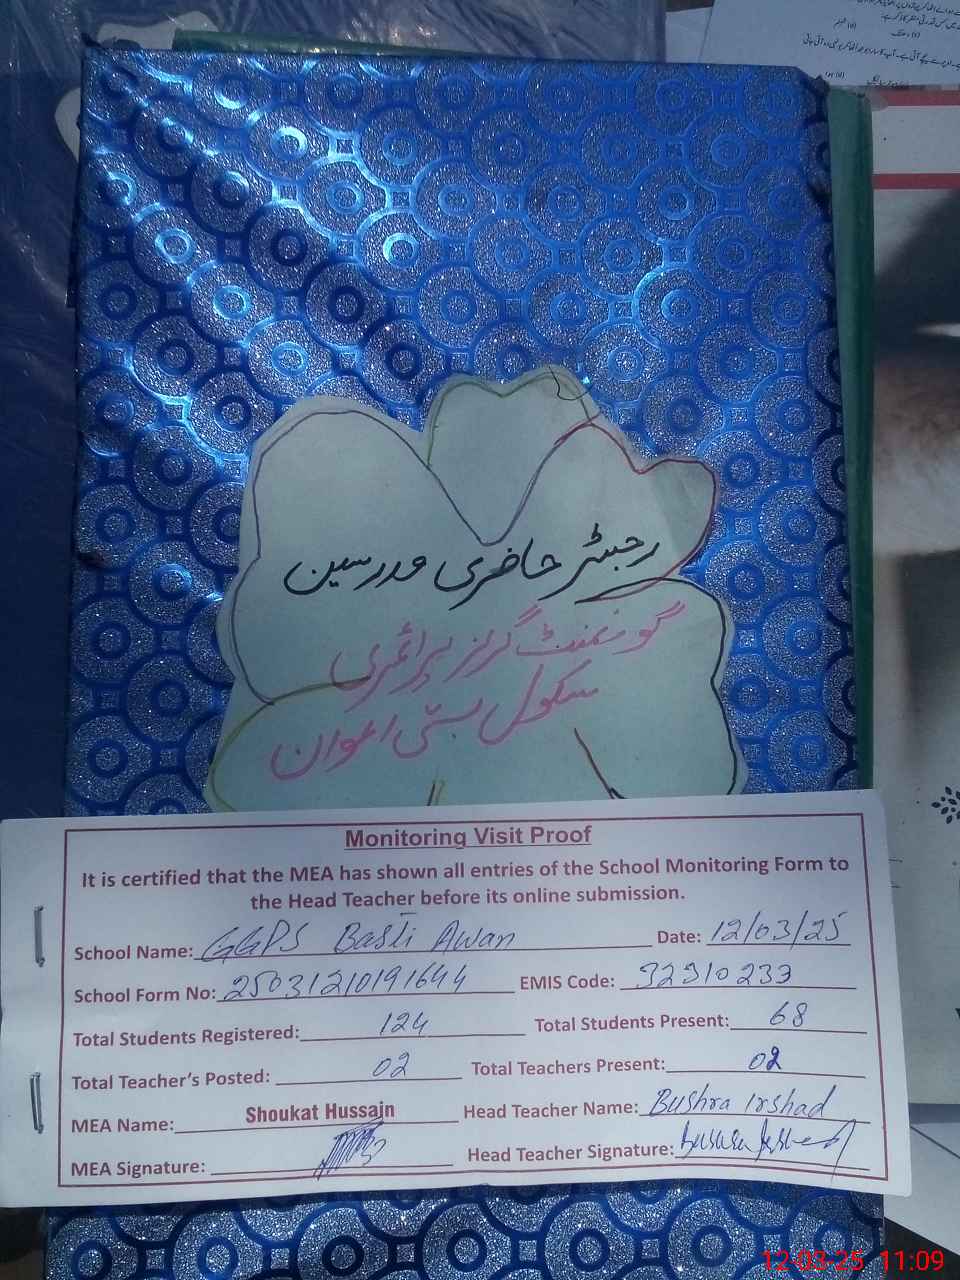 رجسٹر حاضری مدرسین
گورنمنٹ گرلز پرائمری
سکول بستی اعوان
Monitoring Visit Proof
It is certified that the MEA has shown all entries of the School Monitoring Form to
the Head Teacher before its online submission.
School Name: GGPS Basti Awan Date: 12/03/25
School Form No: 25031210191644 EMIS Code: 32310233
Total Students Registered: 124 Total Students Present: 68
Total Teacher's Posted: 02 Total Teachers Present: 02
MEA Name: Shoukat Hussain Head Teacher Name: Bushra Irshad
MEA Signature: Head Teacher Signature:
12-03-25 11:09